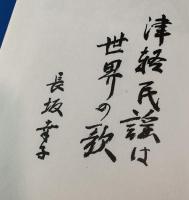 津軽民謡は
世界の歌
長坂幸子